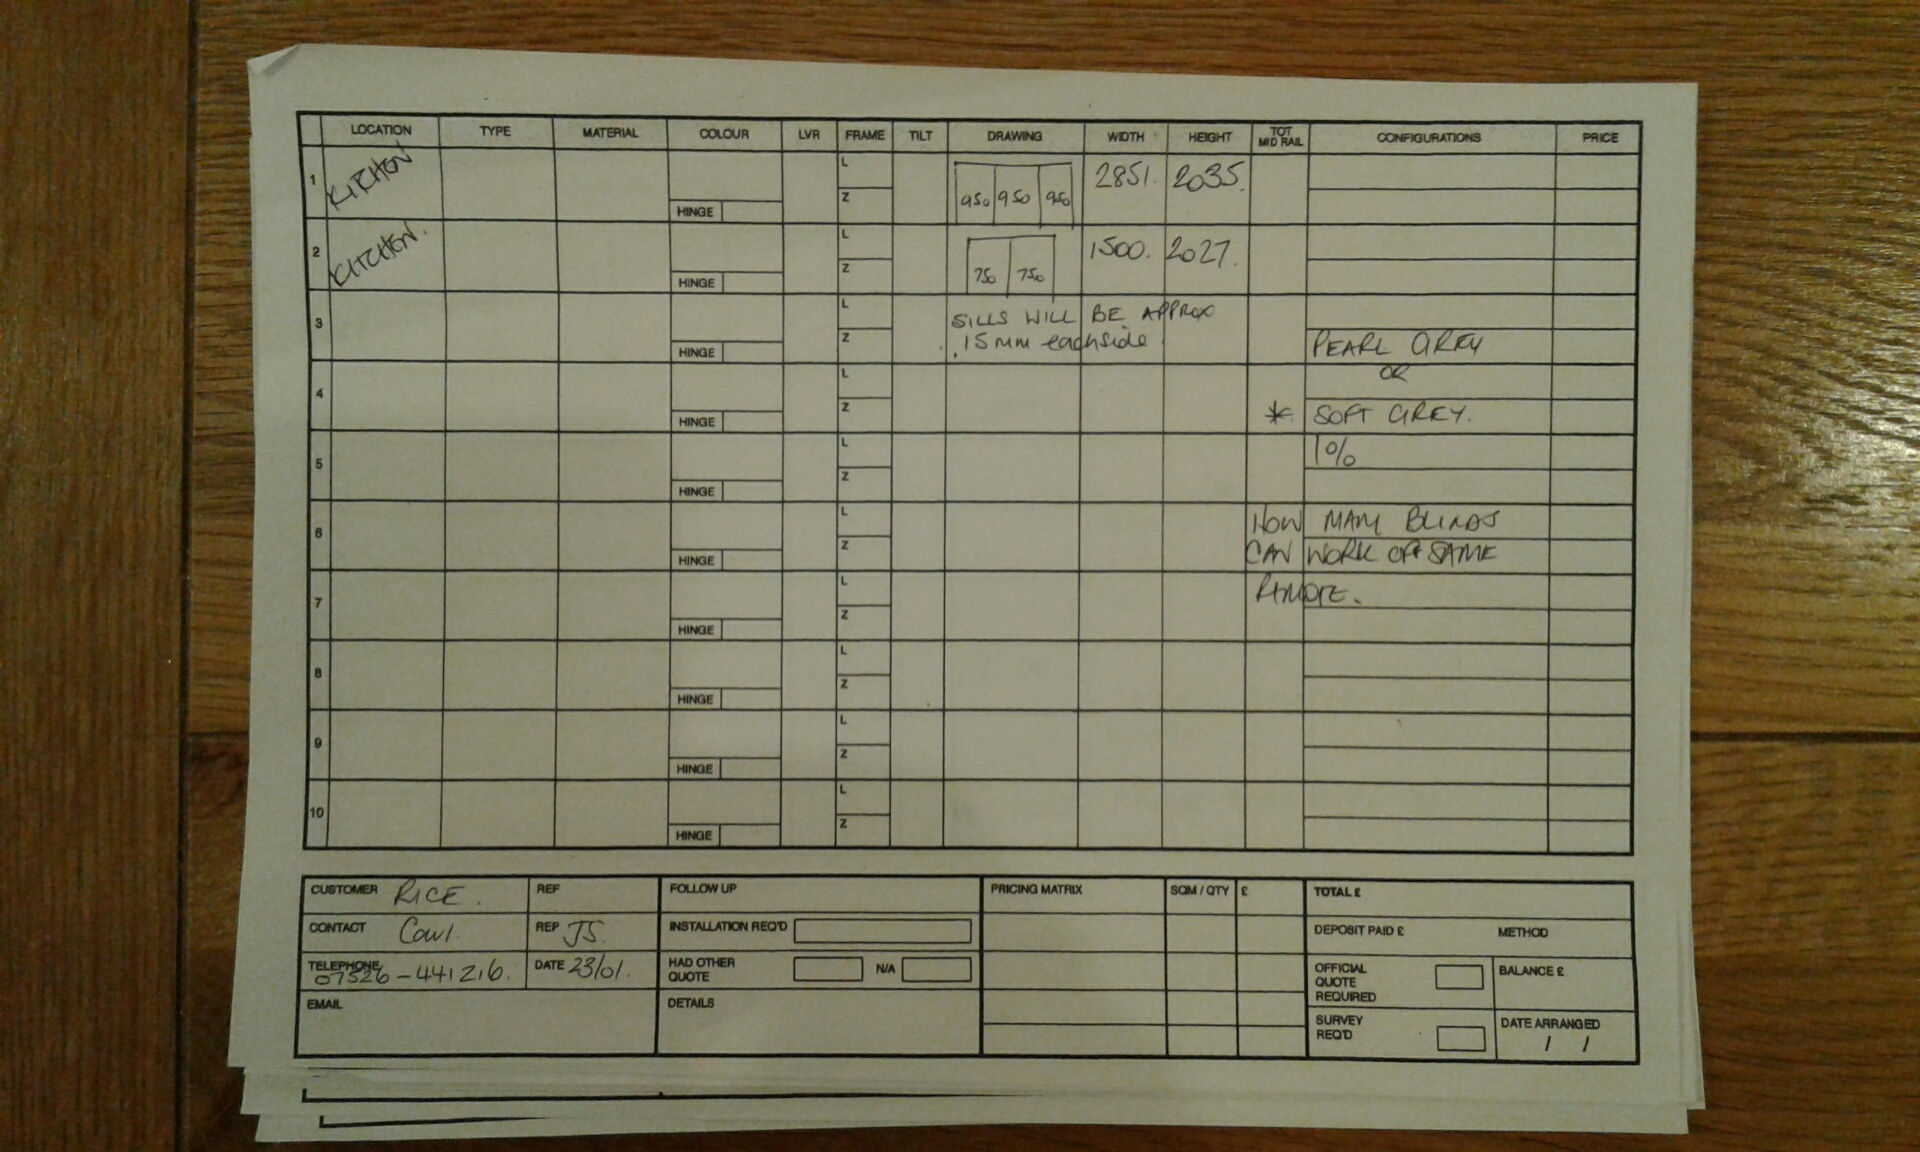 LOCATION TYPE MATERIAL COLOUR LVR FRAME TILT DRAWING WIDTH HEIGHT TOT MID RAIL CONFIGURATIONS PRICE
1 KITCHEN HINGE L Z 950 950 950 2851. 2035.
2 KITCHEN. HINGE L Z 750 750 1500. 2027.
3 HINGE L Z SILLS WILL BE APPROX
15MM eachside PEARL GREY
OR
4 HINGE L Z * SOFT GREY.
5 HINGE L Z 1%
6 HINGE L Z HOW MANY BLINDS
CAN WORK OFF SAME
7 HINGE L Z REMOTE.
8 HINGE L Z
9 HINGE L Z
10 HINGE L Z
CUSTOMER RICE. REF
CONTACT REP JS.
TELEPHONE 07526-441216. DATE 23/01.
EMAIL
FOLLOW UP
INSTALLATION REQ'D
HAD OTHER QUOTE N/A
DETAILS
PRICING MATRIX SQM / QTY £
TOTAL £
DEPOSIT PAID £ METHOD
OFFICIAL QUOTE REQUIRED BALANCE £
SURVEY REQ'D DATE ARRANGED
/ /